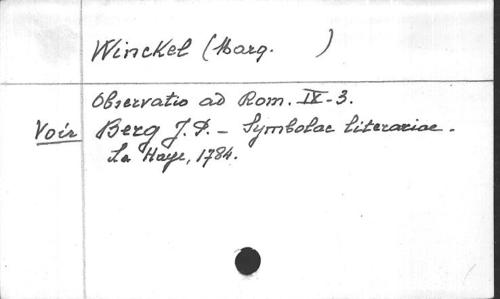 Winckel (Marg. )
Observatio ad Rom. IX-3.
Voir Berg J. P. - Symbolae literariae.
La Haye, 1784.